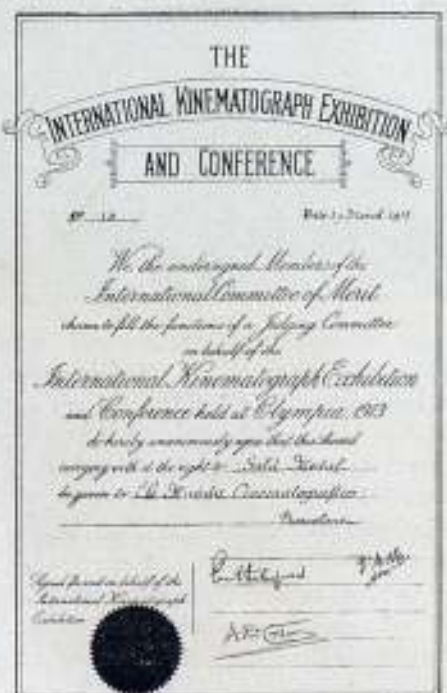 THE
INTERNATIONAL KINEMATOGRAPH EXHIBITION
AND CONFERENCE
Nº 10
We the undersigned Members of the
International Committee of Merit
chosen to fill the functions of a Judging Committee
on behalf of the
International Kinematograph Exhibition
and Conference held at Olympia, 1913
do hereby unanimously agree that this Award
carrying with it the right to Gold Medal
be given to El Mundo Cinematografico
Barcelona
Signed Sealed on behalf of the
International Kinematograph
Exhibition